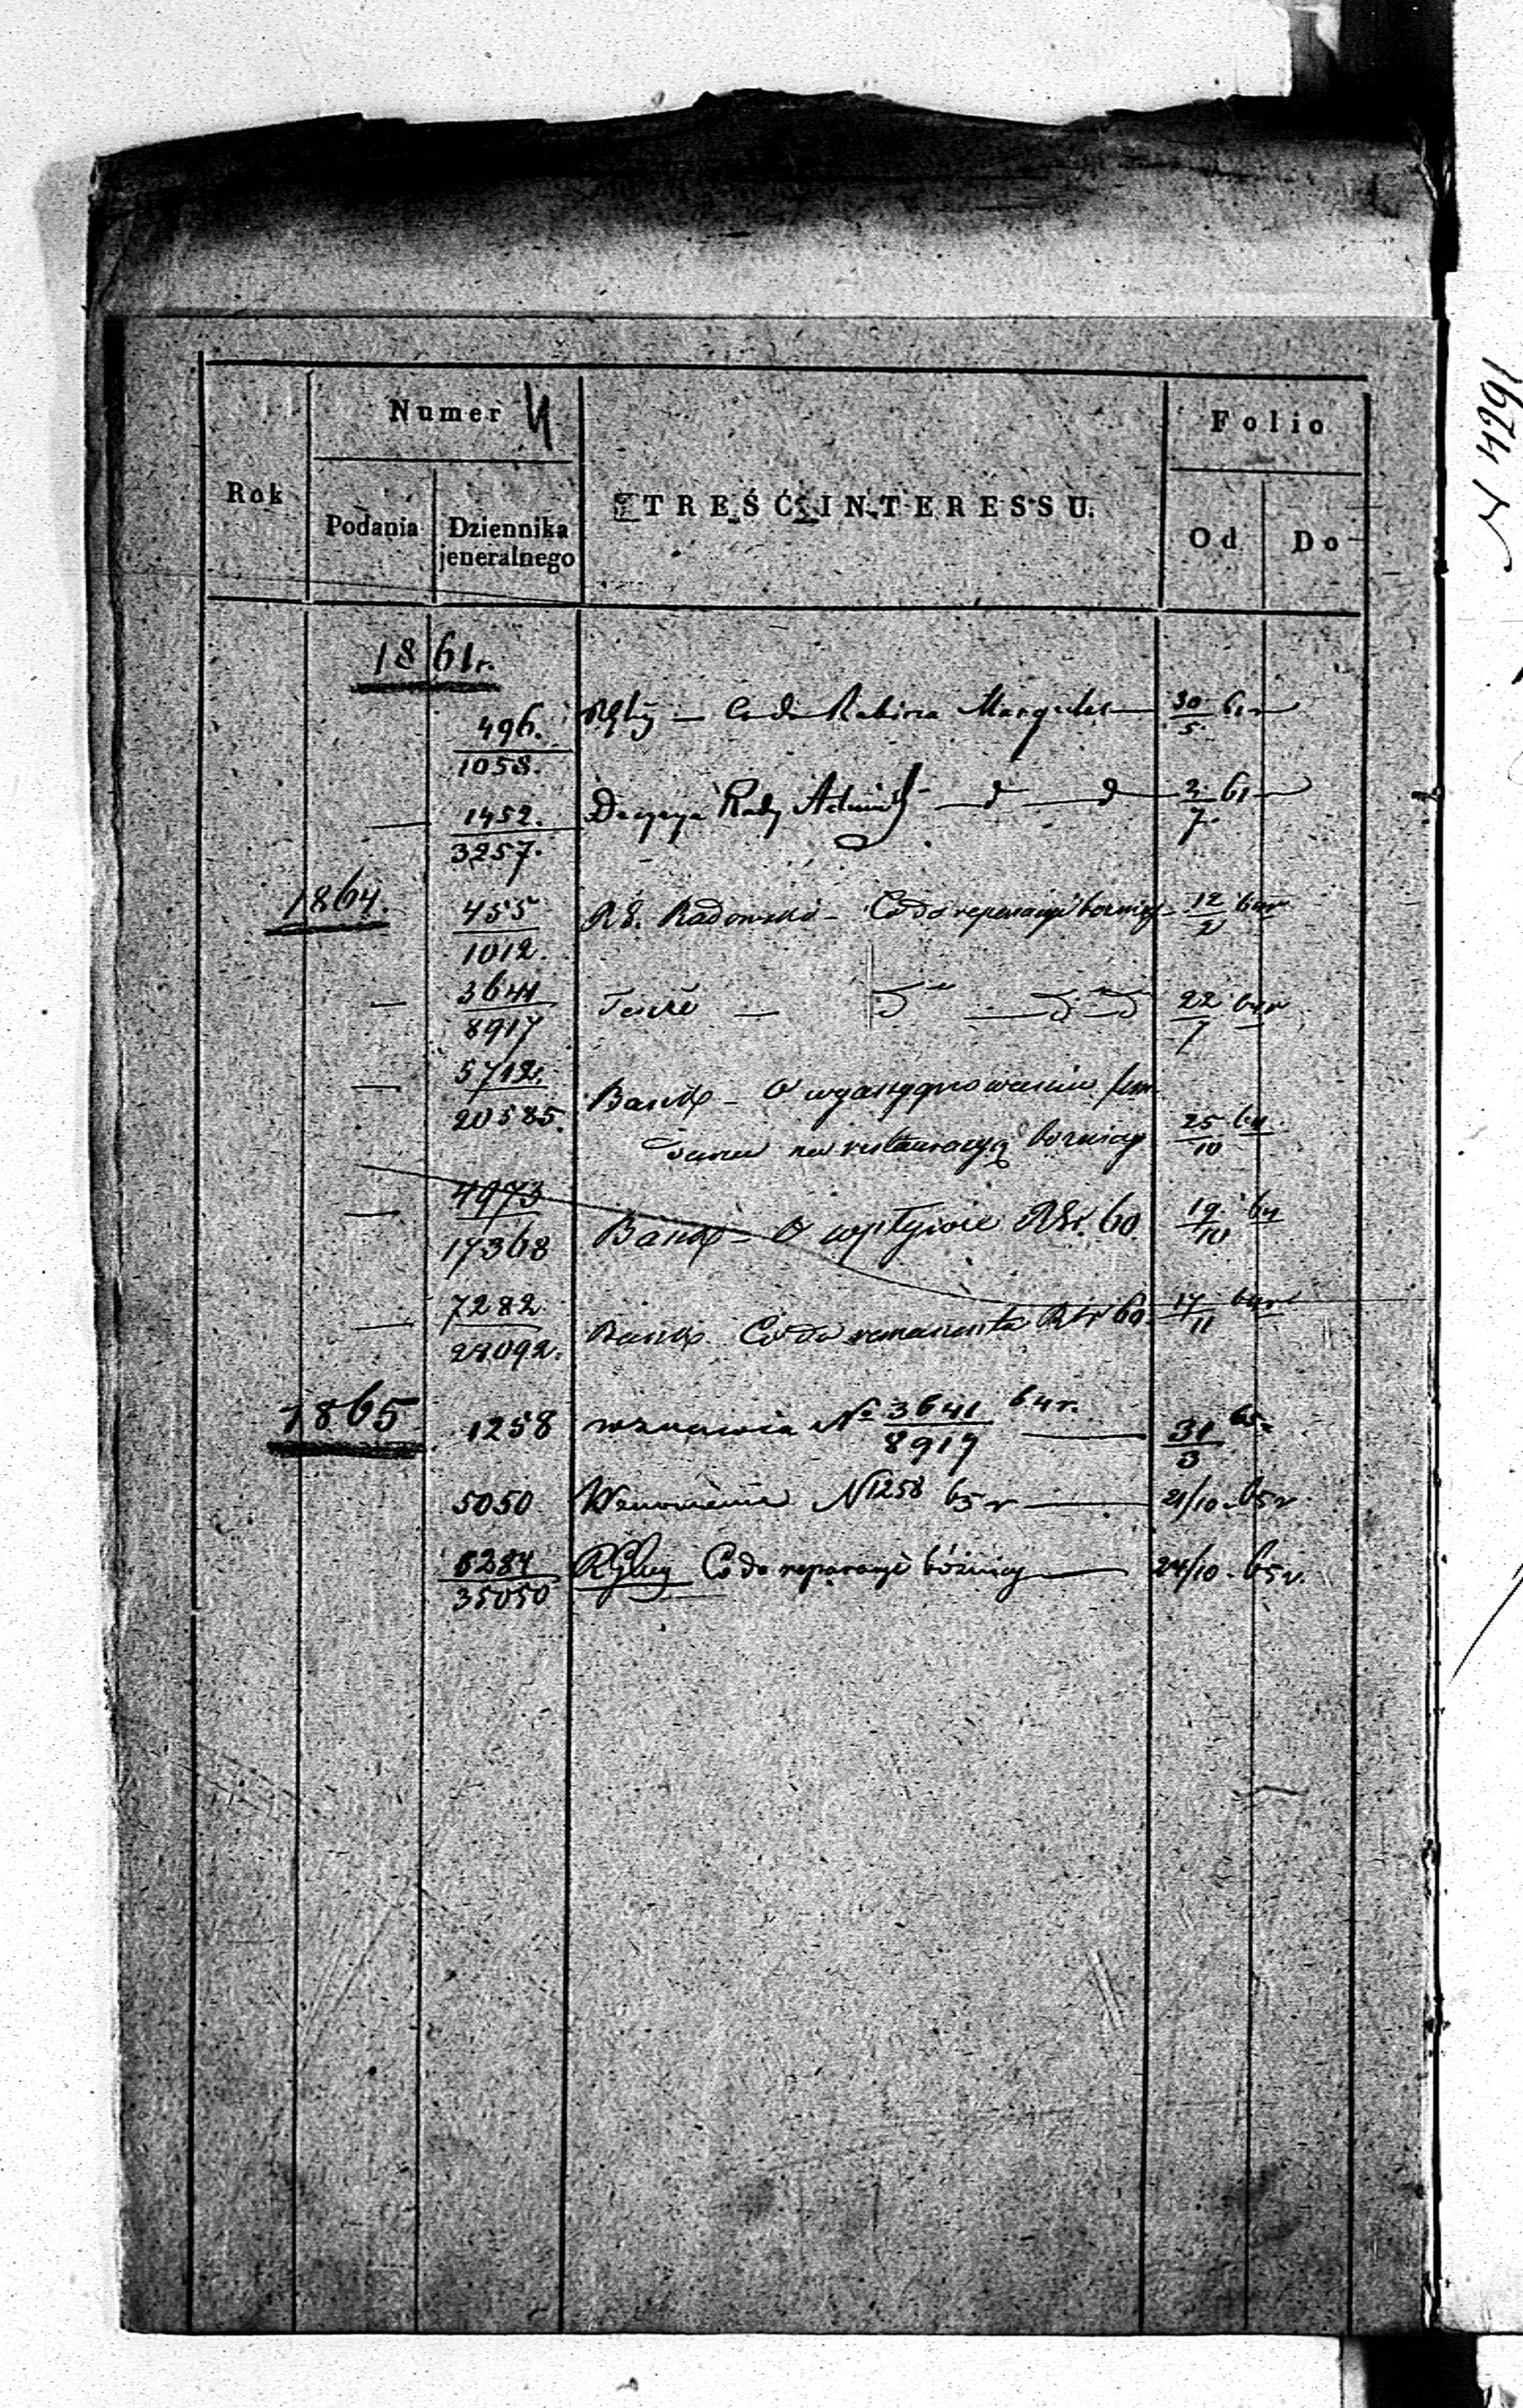 Numer 4
Folio
Rok
Podania
Dziennika
jeneralnego
TREŚĆ INTERESSU.
Od
Do
N 4291
1861r.
496.
1058.
Co do Rabina Margules — 30/5 61r
— 1452.
3257.
Decyzya Rady Admin — d — d — 2/7 61r
1864.
455
1012.
Radomski — Co do reperacyi bożnicy — 12/2 64r
— 3641
8917
Tenże — d — d 22/7 64r
— 5712.
20585.
Bank — O wyasygnowanie fun
duszu na restauracyą bożnicy 25/10 64
— 4973
17368
Bank — O wpływie RSr. 60. 19/10 64
— 7282
28092.
Bank Co do remanentu RSr 60. 17/11 64r
1865
1258 wznawia No 3641/8917 64r. — 31/3 65r
5050 Wznowienie N 1258 65r — 21/10 65r
6284
35050
Co do reparacyi bóżnicy — 24/10 65r.